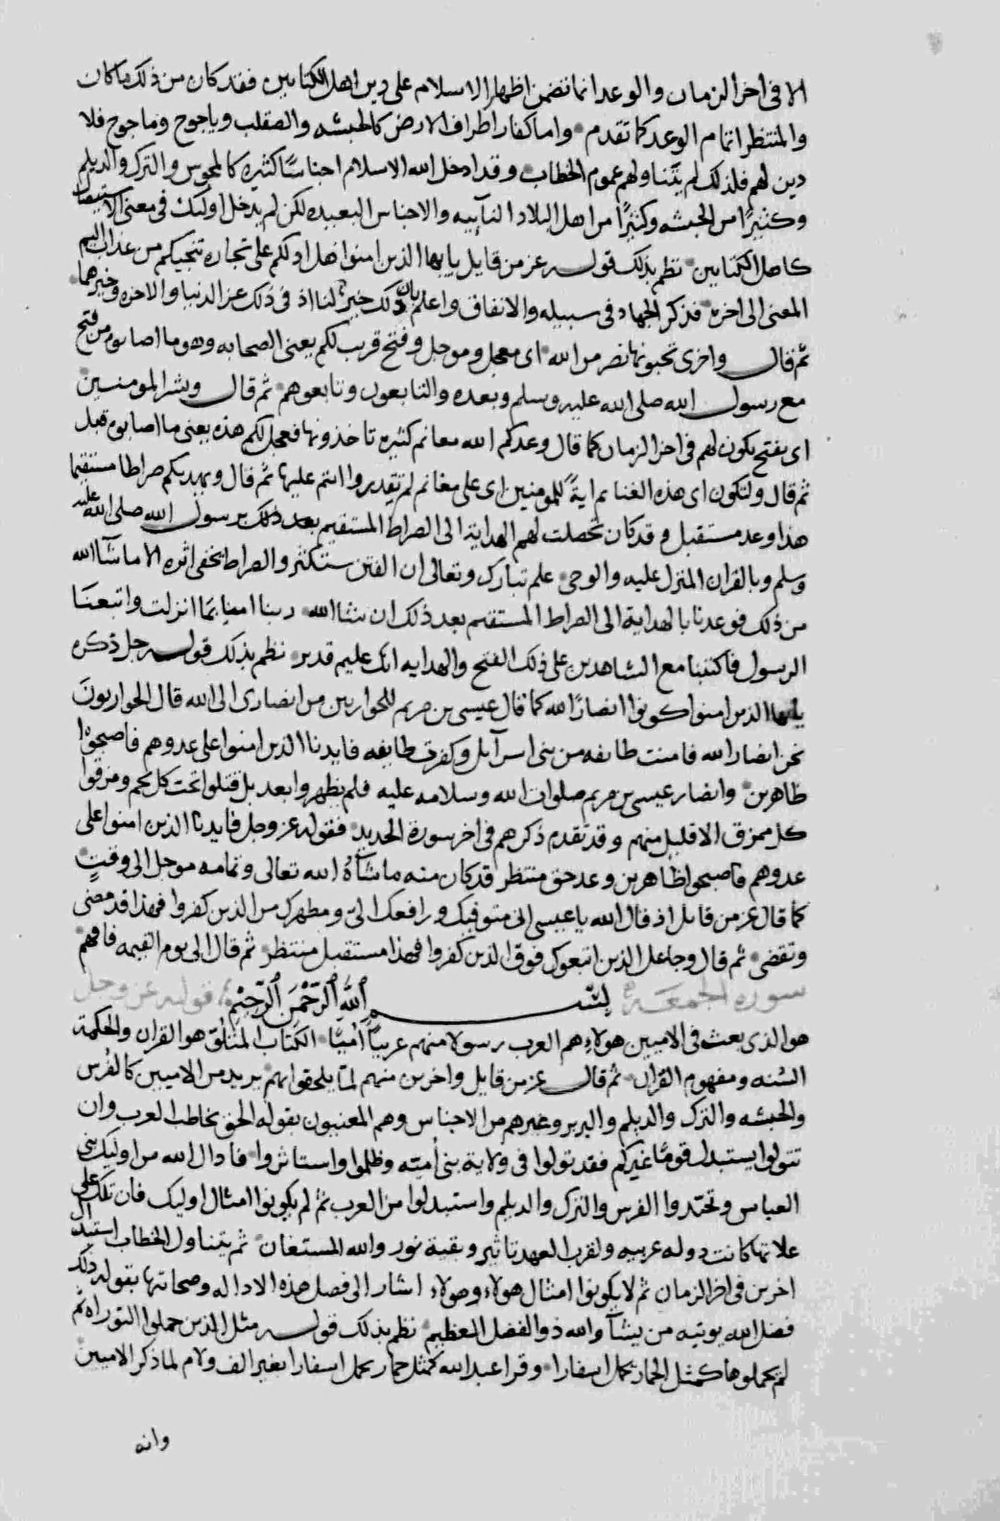 الا فى اخر الزمان والوعد انما تضمن اظهار الاسلام على دين اهل الكتابين فقد كان من ذلك ما كان
والمنتظر اتمام الوعد كما تقدم واما كفار اطراف الارض كالحبشه والصقلب وياجوج وماجوج فلا
دين لهم فلذلك لم يتناولهم عموم الخطاب وقد ادخل الله الاسلام اجناسًا كثيره كالمجوس والترك والديلم
وكثيرًا من الحبشه وكثيرًا من اهل البلاد النآييه والاجناس البعيده لكن لم يدخل اوليك فى معنى الاستيصال
كاهل الكتابين نظم بذلك قوله عز من قايل يايها الذين امنوا هل ادلكم على تجاره تنجيكم من عذاب اليم
المعنى الى اخره فذكر الجهاد فى سبيله والانفاق واعلم بان ذلك خير لنا اذ فى ذلك عز الدنيا والاخره وخيرهما
ثم قال واخرى تحبونها نصر من الله اى معجل وموجل وفتح قريب لكم يعنى الصحابه وهو ما اصابوه من فتح
مع رسول الله صلى الله عليه وسلم وبعده والتابعون وتابعوهم ثم قال وبشر المومنين
اى بفتح يكون لهم فى اخر الزمان كما قال وعدكم الله مغانم كثيره تاخذونها فعجل لكم هذه يعنى ما اصابوه قبل
ثم قال ولتكون اى هذه الغنايم ايةً للمومنين اى على مغانم لم تقدروا انتم عليها ثم قال ويهديكم صراطا مستقيما
هذا وعد مستقبل وقد كان تحصلت لهم الهداية الى الصراط المستقيم بعد ذلك برسول الله صلى الله عليه
وسلم وبالقران المنزل عليه والوحى علم تبارك وتعالى ان الفتن ستكثر والصراط يخفى اثره الا ما شآ الله
من ذلك فوعدنا بالهداية الى الصراط المستقيم بعد ذلك ان شا الله ربنا امنا بما انزلت واتبعنا
الرسول فاكتبنا مع الشاهدين على ذلك الفتح والهدايه انك عليم قدير نظم بذلك قوله جل ذكره
يايها الذين امنوا كونوا انصارًا لله كما قال عيسى بن مريم للحواريين من انصارى الى الله قال الحواريون
نحن انصار الله فامنت طايفه من بنى اسرآيل وكفرت طايفه فايدنا الذين امنوا على عدوهم فاصبحوا
ظاهرين وانصار عيسى بن مريم صلوات الله وسلامه عليه فلم يظهروا بعد بل قتلوا تحت كل نجم ومزقوا
كل ممزق الا قليل منهم وقد تقدم ذكرهم فى اخر سورة الحديد فقوله عز وجل فايدنا الذين امنوا على
عدوهم فاصبحوا ظاهرين وعد حق منتظر قد كان منه ما شآءُ الله تعالى وتمامه موجل الى وقتٍ
كما قال عز من قايل اذ قال الله يا عيسى انى متوفيك ورافعك الىّ ومطهرك من الذين كفروا فهذا قد مضى
وتقضى ثم قال وجاعل الذين اتبعوك فوق الذين كفروا فهذا مستقبل منتظر ثم قال الى يوم القيمه فافهم
سورة الجمعة بسم الله الرحمن الرحيم قوله عز وجل
هو الذى بعث فى الاميين هولاء هم العرب رسولا منهم عربيا اميًا الكتاب المتلو هو القران والحكمة
السنه ومفهوم القران ثم قال عز من قايل واخرين منهم لما يلحقوا بهم يريد من الاميين كالفرس
والحبشه والترك والديلم والبربر وغيرهم من الاجناس وهم المعنيون بقوله الحق يخاطب العرب وان
تتولوا يستبدل قومًا غيركم فقد تولوا فى ولاية بنى اميّه وظلموا واستاثروا فادال الله من اوليك بنى
العباس وتجندوا الفرس والترك والديلم واستبدلوا من العرب ثم لم يكونوا امثال اوليك فان تلك على
علاتها كانت دوله عربيه ولقرب العهد تاثير وبقية نور والله المستعان ثم يتناول الخطاب استبدال
اخرين فى اخر الزمان ثم لا يكونوا امثال هولاء وهولاء اشار الى فضل هذه الاداله وصحابتها بقوله ذلك
فضل الله يوتيه من يشآ والله ذو الفضل العظيم نظم بذلك قوله مثل الذين حملوا التوراه ثم
لم يحملوها كمثل الحمار يحمل اسفارا وقرا عبد الله كمثل حمار يحمل اسفارا بغير الف ولام لما ذكر الاميين
وانه